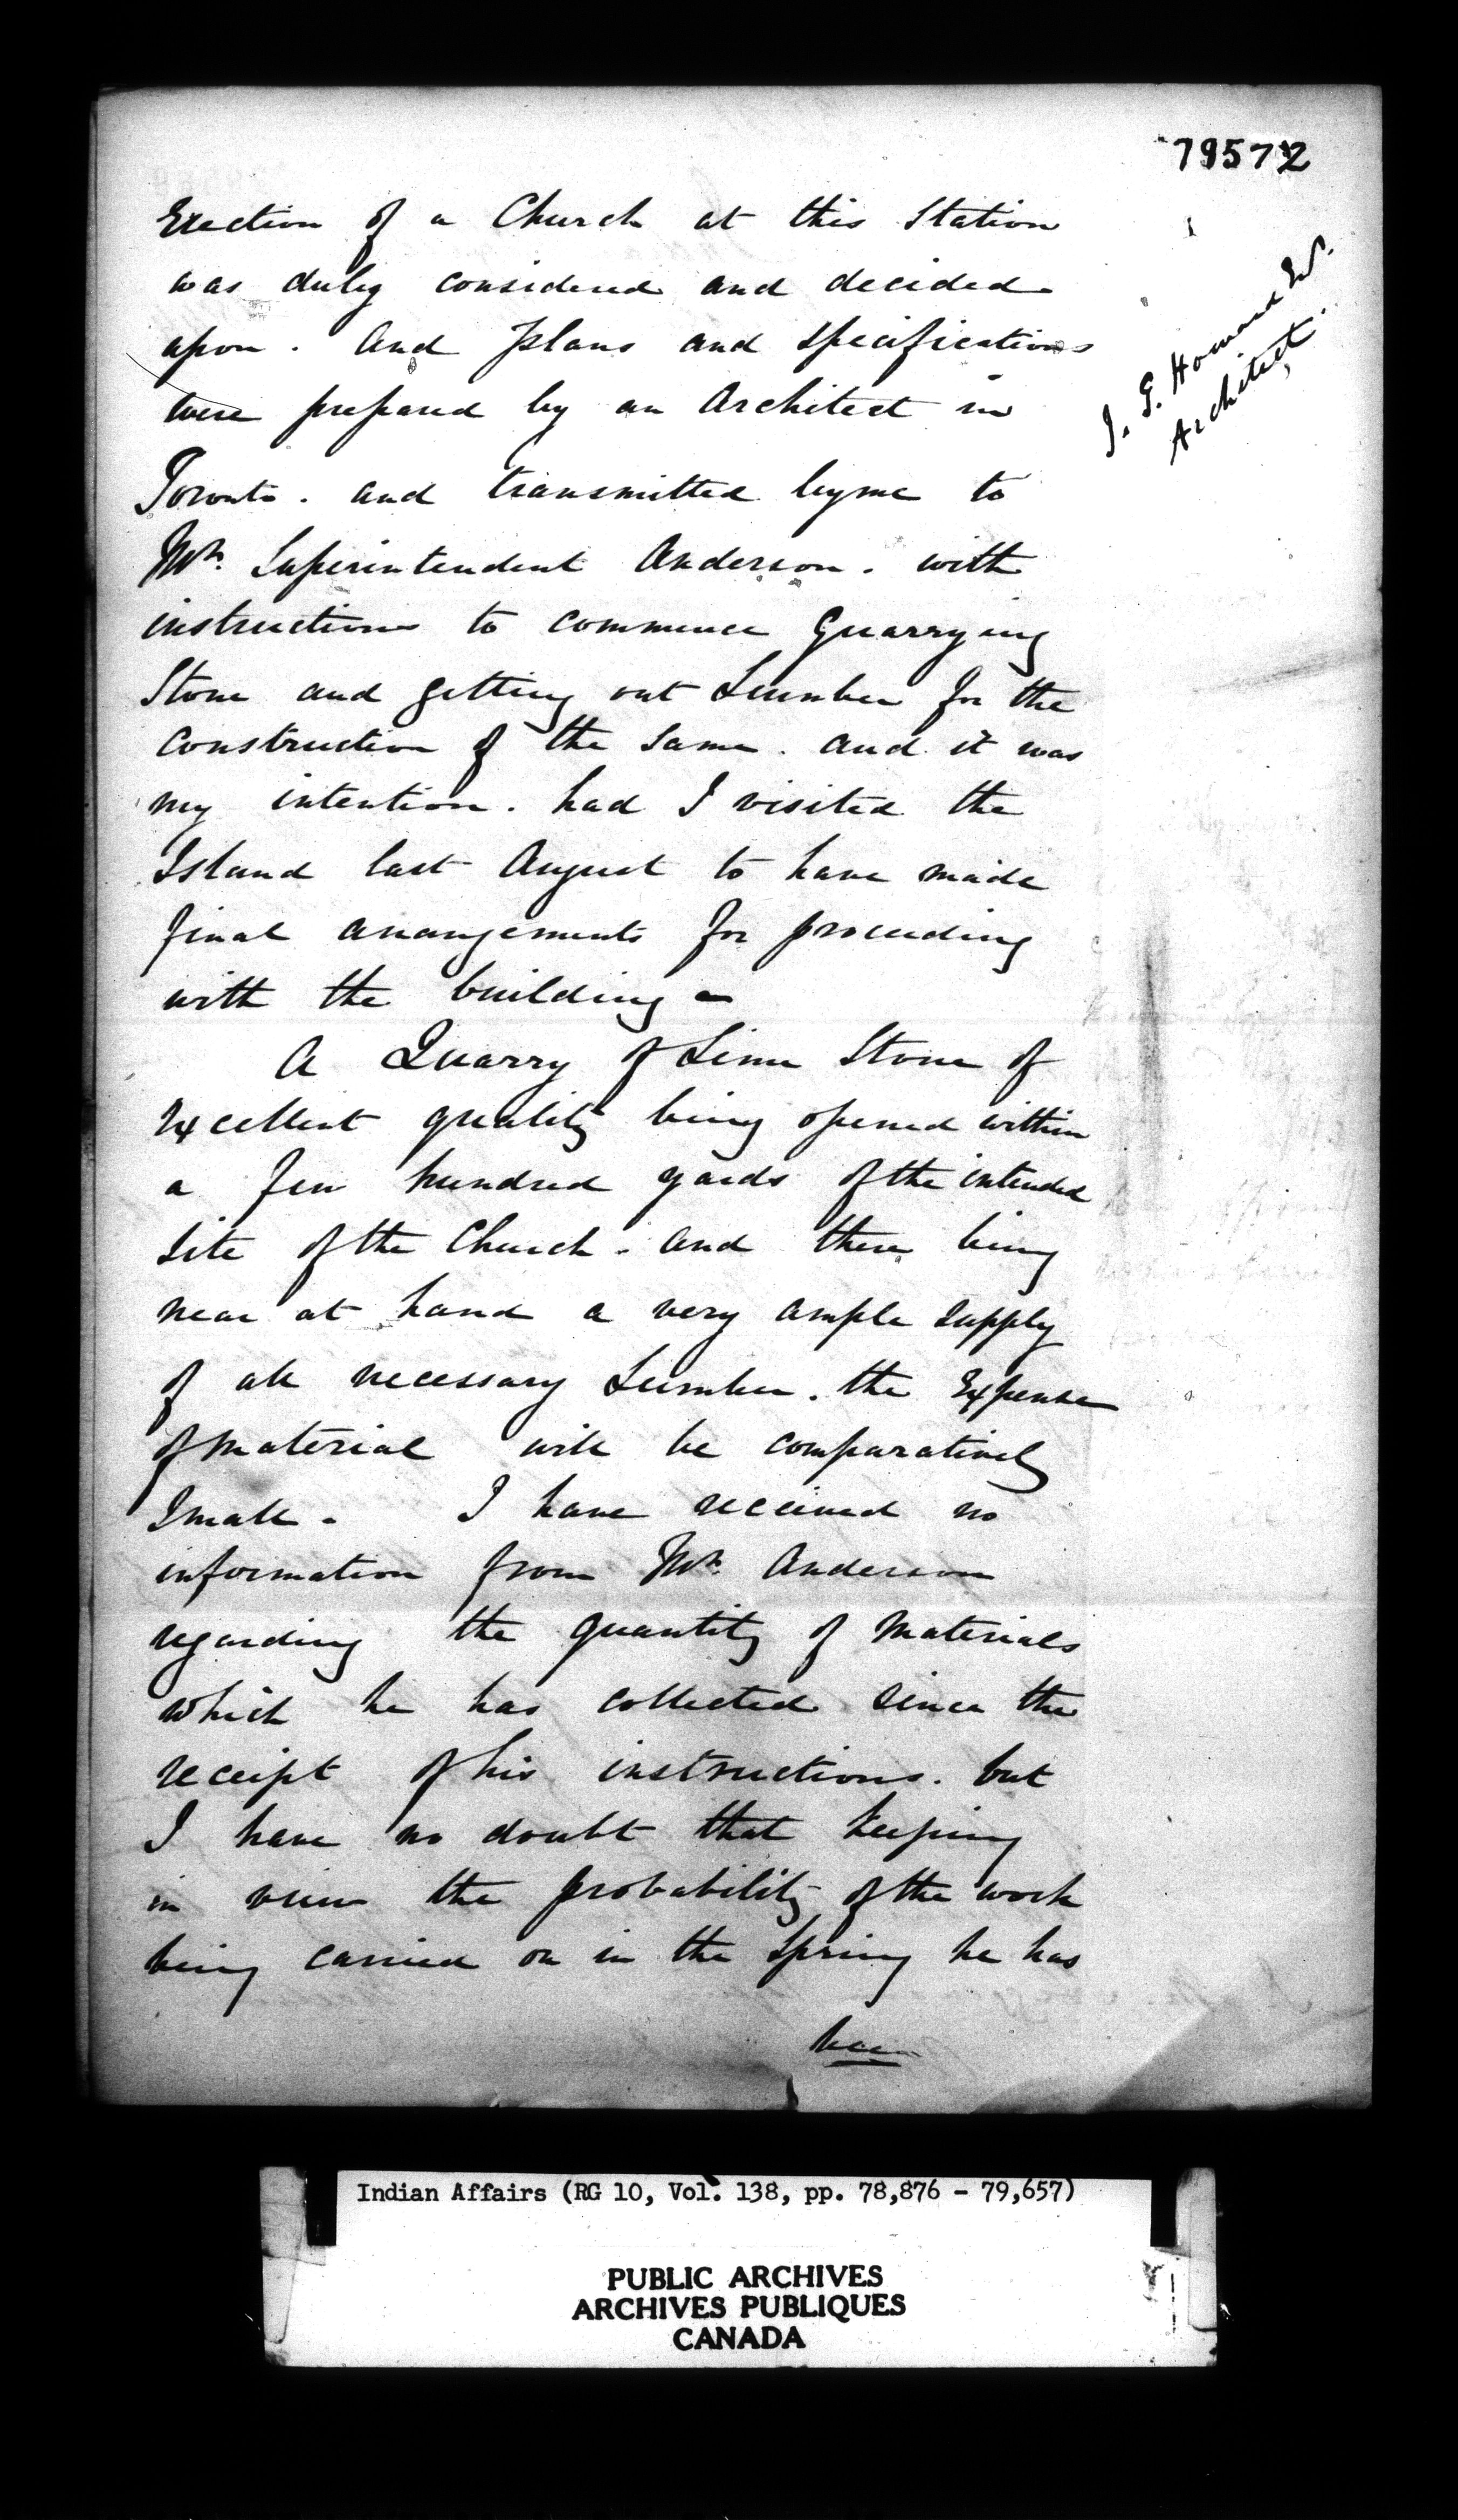 79572
Erection of a Church at this Station
was duly considered and decided
upon. And Plans and Specifications
were prepared by an Architect in
Toronto. and transmitted by me to
Mr. Superintendent Anderson. with
instructions to commence Quarrying
Stone and getting out Lumber for the
Construction of the Same. and it was
my intention. had I visited the
Island last August to have made
final arrangements for proceeding
with the building -
A Quarry of Lime Stone of
Excellent quality being opened within
a few hundred yards of the intended
Site of the Church. and there being
near at hand a very ample supply
of all necessary Lumber. the Expense
of Material will be comparatively
Small. I have received no
information from Mr. Anderson
regarding the quantity of Materials
which he has collected since the
receipt of his instructions. but
I have no doubt that keeping
in view the probability of the work
being carried on in the Spring he has
been
J. G. Howard Esq.
Architect.
Indian Affairs (RG 10, Vol. 138, pp. 78,876 - 79,657)
PUBLIC ARCHIVES
ARCHIVES PUBLIQUES
CANADA